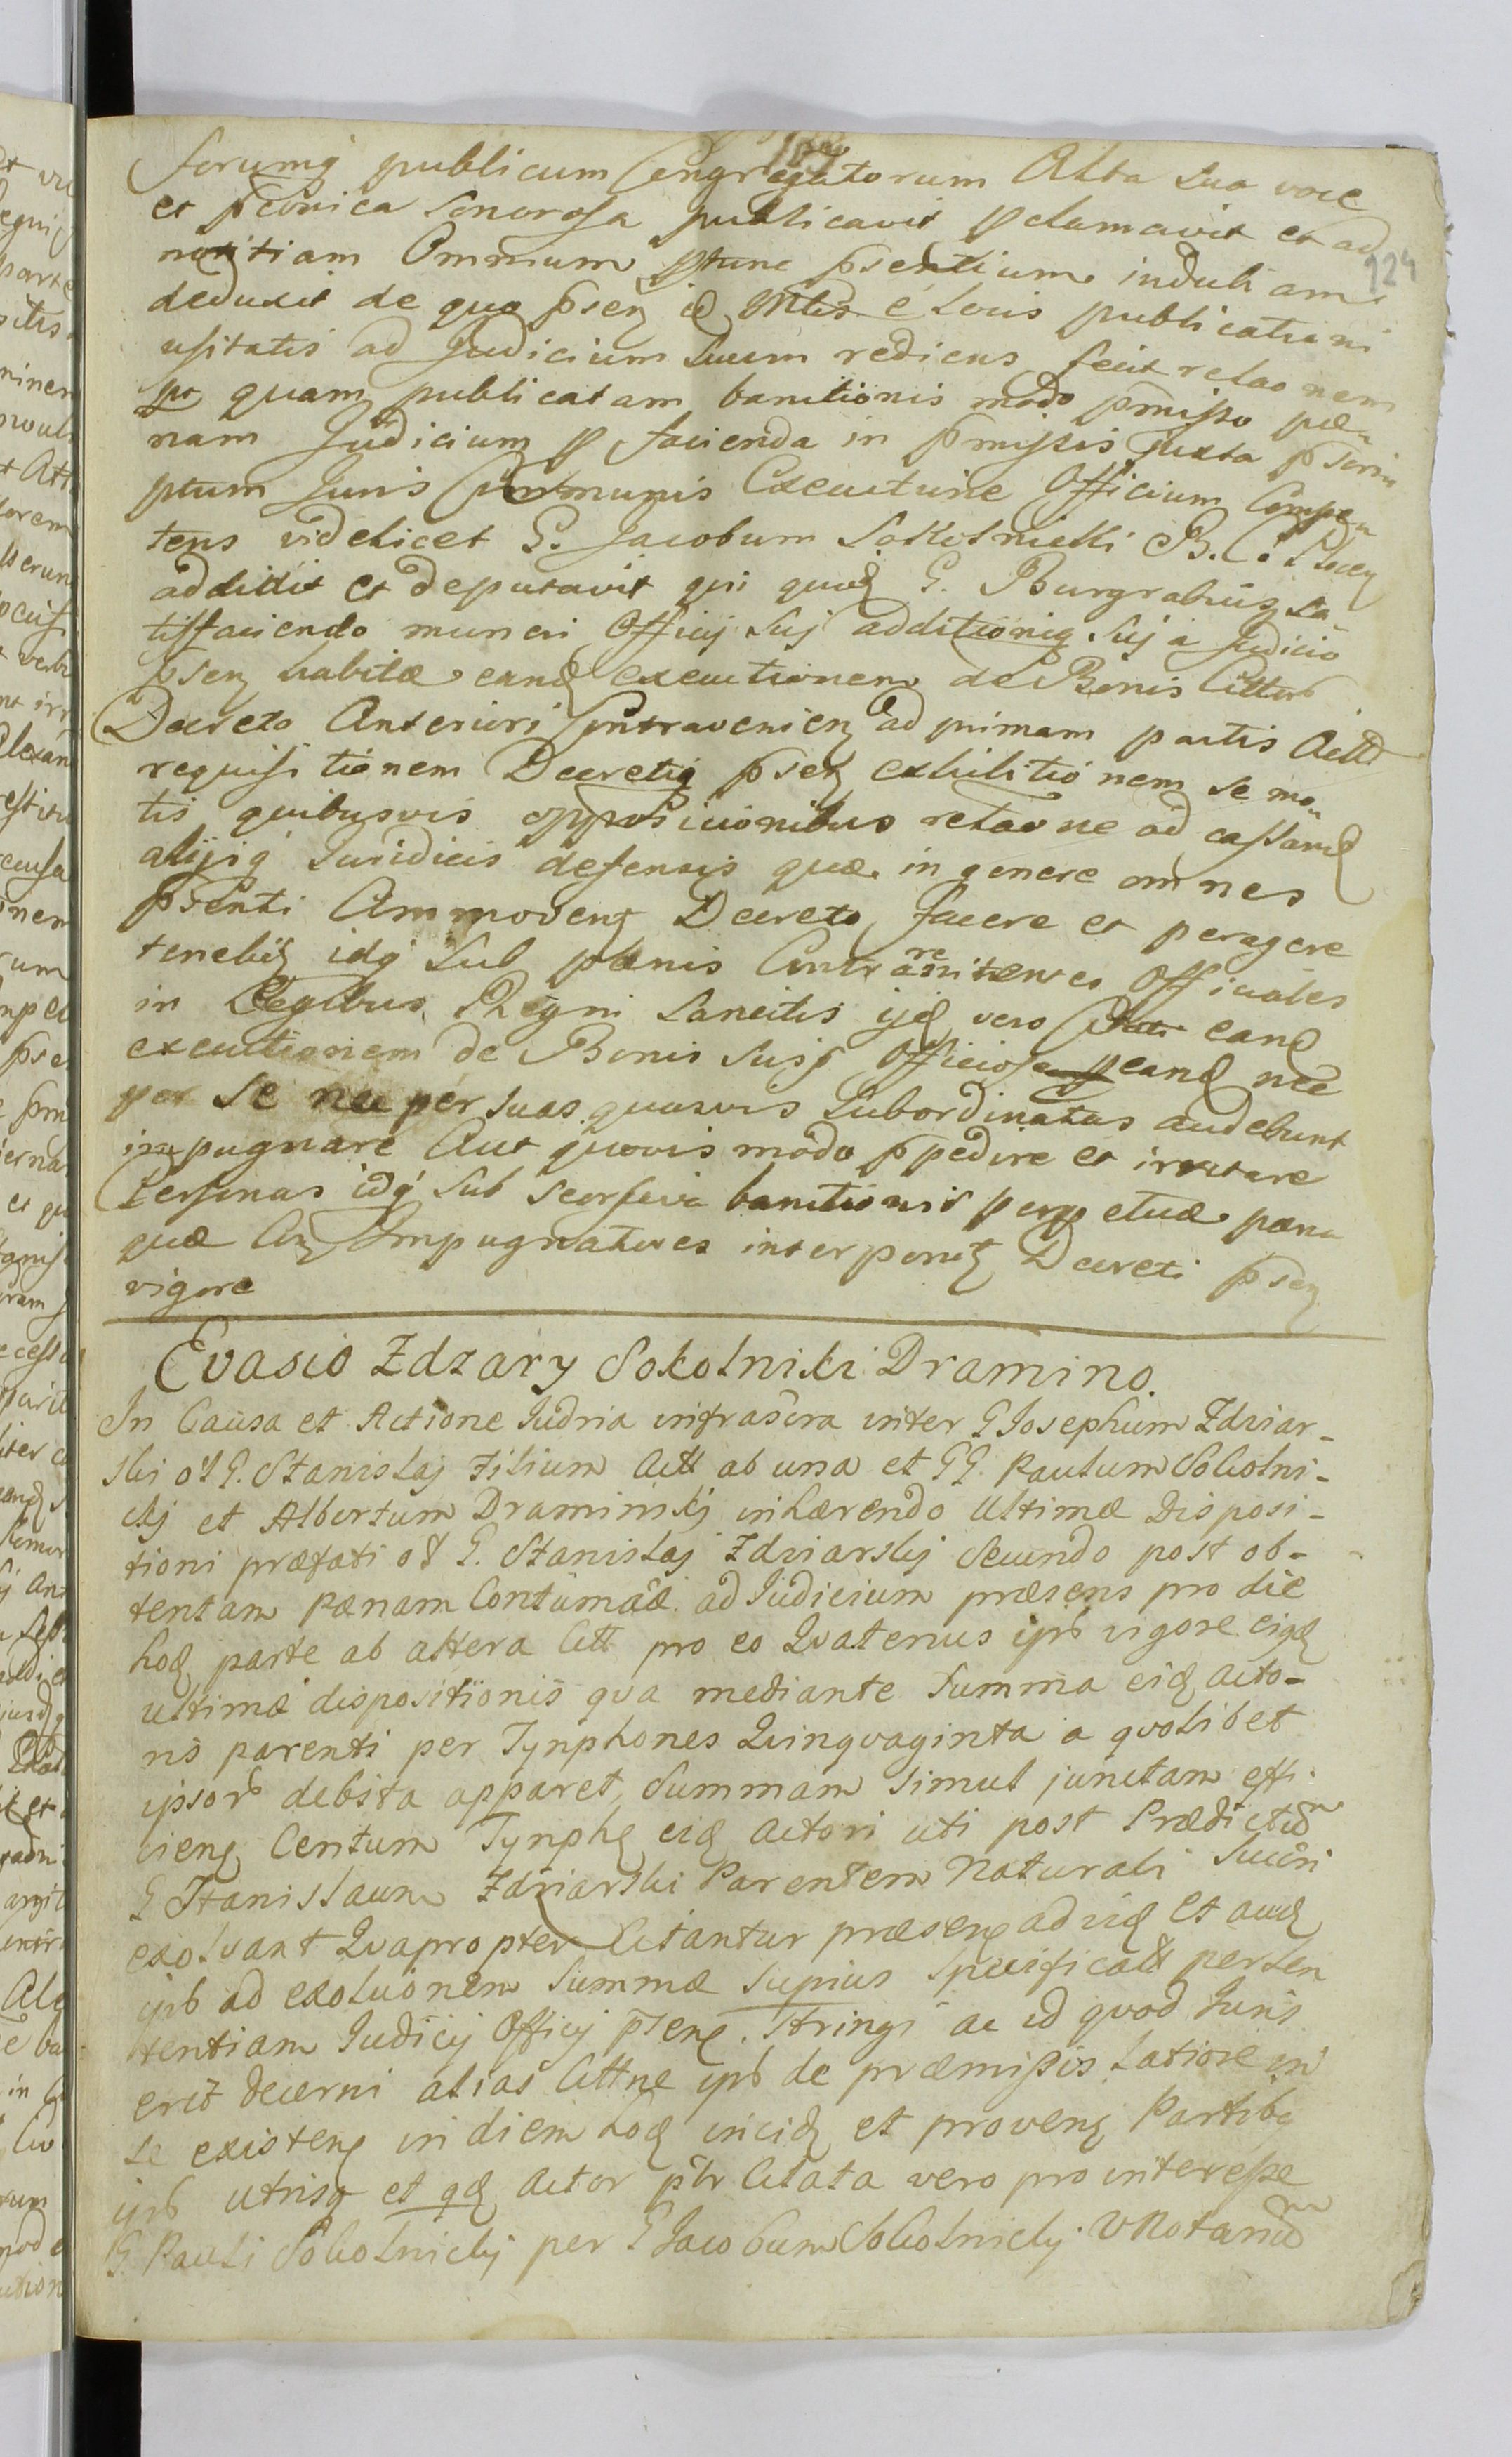 forumq publicum Congregatorum Alta sua voce
et pconica Sonorosa publicavit pclamavit et ad
124
notitiam Omnium ptunc psentium indubiam
deduxit de quo psen id Mtlis é Locis publicationi
usitatis ad Judicium suum rediens fecit relaonem
pt quam publicatam banitionis modo pmisso pœ
nam Judicium p facienda in pmissis Juxta pscri
ptum Juris Communis Executione Officium Compe
tens videlicet G. Jacobum Sokolnicki B. C. Plocen
addidit et deputavit qui quidq G. Burgrabius Sa
tisfaciendo muneri Officij Suj additioniq Suj á Judicio
psen habitæ eand executionem de Bonis Cittor
Decreto Anteriori Contravenien ad primam partis Actt
requisitionem Decretiq psen exhibitionem se mo
tis quibusvis oppositionibus relaone ad cassand
alijsq Juridicis defensis quæ in genere omnes
psenti Ammoven Decreto facere et peragere
tenebit idq Sub pænis Contra renitentes Officiales
in Legibus Regni Sancitis ijd vero Citti eand
executionem de Bonis Suis p Officiose peand nec
per se nec per suas quasvis Subordinatas audebunt
impugnare Aut quovis modo ppedire et irritare
Personas idq Sub seorsiva banitionis perpetuæ pæna
quæ Con Impugnatores interponit Decreti psen
vigore
Evasio Zdzary Sokolniki Dramino.
In Causa et Actione Judria infrascra inter G Josephum Zdziar-
ski ol G. Stanislaj Filium Actt ab una et GG. Paulum Sokolni-
ckj et Albertum Draminskj inhærendo Ultimæ Disposi-
tioni præfati ol G. Stanislaj Zdziarskj Secundo post ob-
tentam Pænam Contumaæ ad Judicium præsens pro die
hod parte ab altera Citt pro eo Quatenus ipsi vigore eiqd
ultimæ dispositionis qua mediante Summa eid acto-
ris parenti per Tynphones Quinquaginta a quolibet
ipsor debita apparet, Summam simul junctam effi-
cien Centum Tynphq eid Actori uti post Prædictum
G Stanislaum Zdziarski Parentem naturali Succri
exolvant Quapropter Citantur præsen ad vid et aud
ipsi ad exoluonem Summæ supius specificatt per Sen
tentiam Judicij Officij psen. Stringi ac id quod Juris
erit decerni alias Cittne ipsi de præmissis Latiore in
se existen in diem hod incid et proven Partibq
ipsi utrisq et qd Actor pstr Citata vero pro interesse
G. Pauli Sokolnickj per G Jacobum Sokolnickj VNotarium